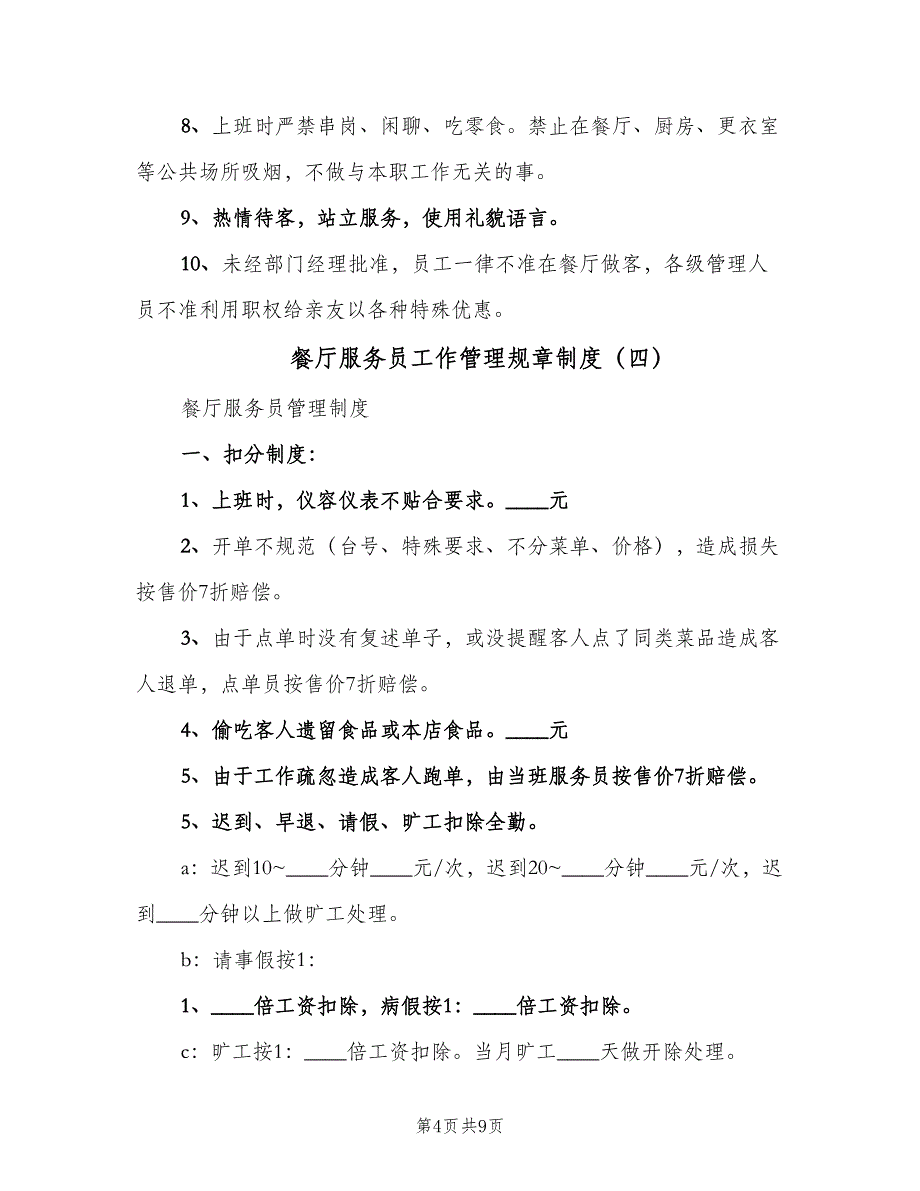 8、上班时严禁串岗、闲聊、吃零食。禁止在餐厅、厨房、更衣室
等公共场所吸烟，不做与本职工作无关的事。
9、热情待客，站立服务，使用礼貌语言。
10、未经部门经理批准，员工一律不准在餐厅做客，各级管理人
员不准利用职权给亲友以各种特殊优惠。
餐厅服务员工作管理规章制度（四）
餐厅服务员管理制度
一、扣分制度：
1、上班时，仪容仪表不贴合要求。____元
2、开单不规范（台号、特殊要求、不分菜单、价格），造成损失
按售价7折赔偿。
3、由于点单时没有复述单子，或没提醒客人点了同类菜品造成客
人退单，点单员按售价7折赔偿。
4、偷吃客人遗留食品或本店食品。____元
5、由于工作疏忽造成客人跑单，由当班服务员按售价7折赔偿。
5、迟到、早退、请假、旷工扣除全勤。
a：迟到10~____分钟____元/次，迟到20~____分钟____元/次，迟
到____分钟以上做旷工处理。
b：请事假按1：
1、____倍工资扣除，病假按1：____倍工资扣除。
c：旷工按1：____倍工资扣除。当月旷工____天做开除处理。
第4页 共9页